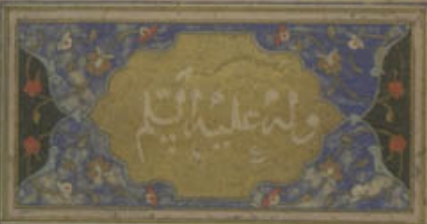 وله علیه السلم